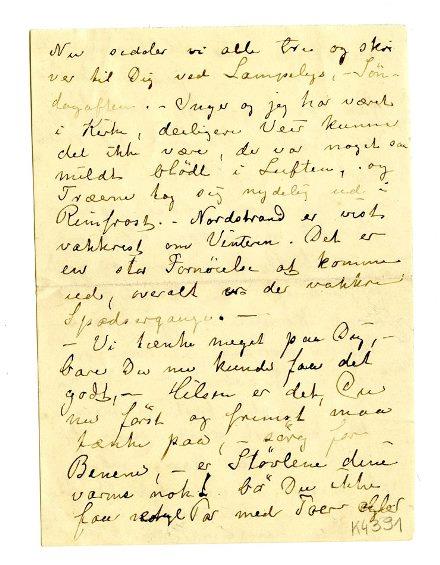 Nu sidder vi alle tre og skri
ver til Dig ved Lampelys, - Søn-
dagaften. - Inger og jeg har været
i Kirke, deiligere Veir kunne
det ikke være, der var noget saa
mildt blødt i Luften, og
Træerne tog sig nydelig ud i
Rimfrost. - Nordstrand er vist
vakkrest om Vinteren. Det er
en stor Fornöielse at komme
ud, overalt er der vakkre
Spadsergange. -
- Vi tænke meget paa Dig, -
bare Du nu kunde faa det
godt, - Helsen er det, Du
nu först og fremst maa
tænke paa, - sørg for
Benene, - er Støvlene dine
varme nok! bø Du ikke
faa Par med Foer
K4591